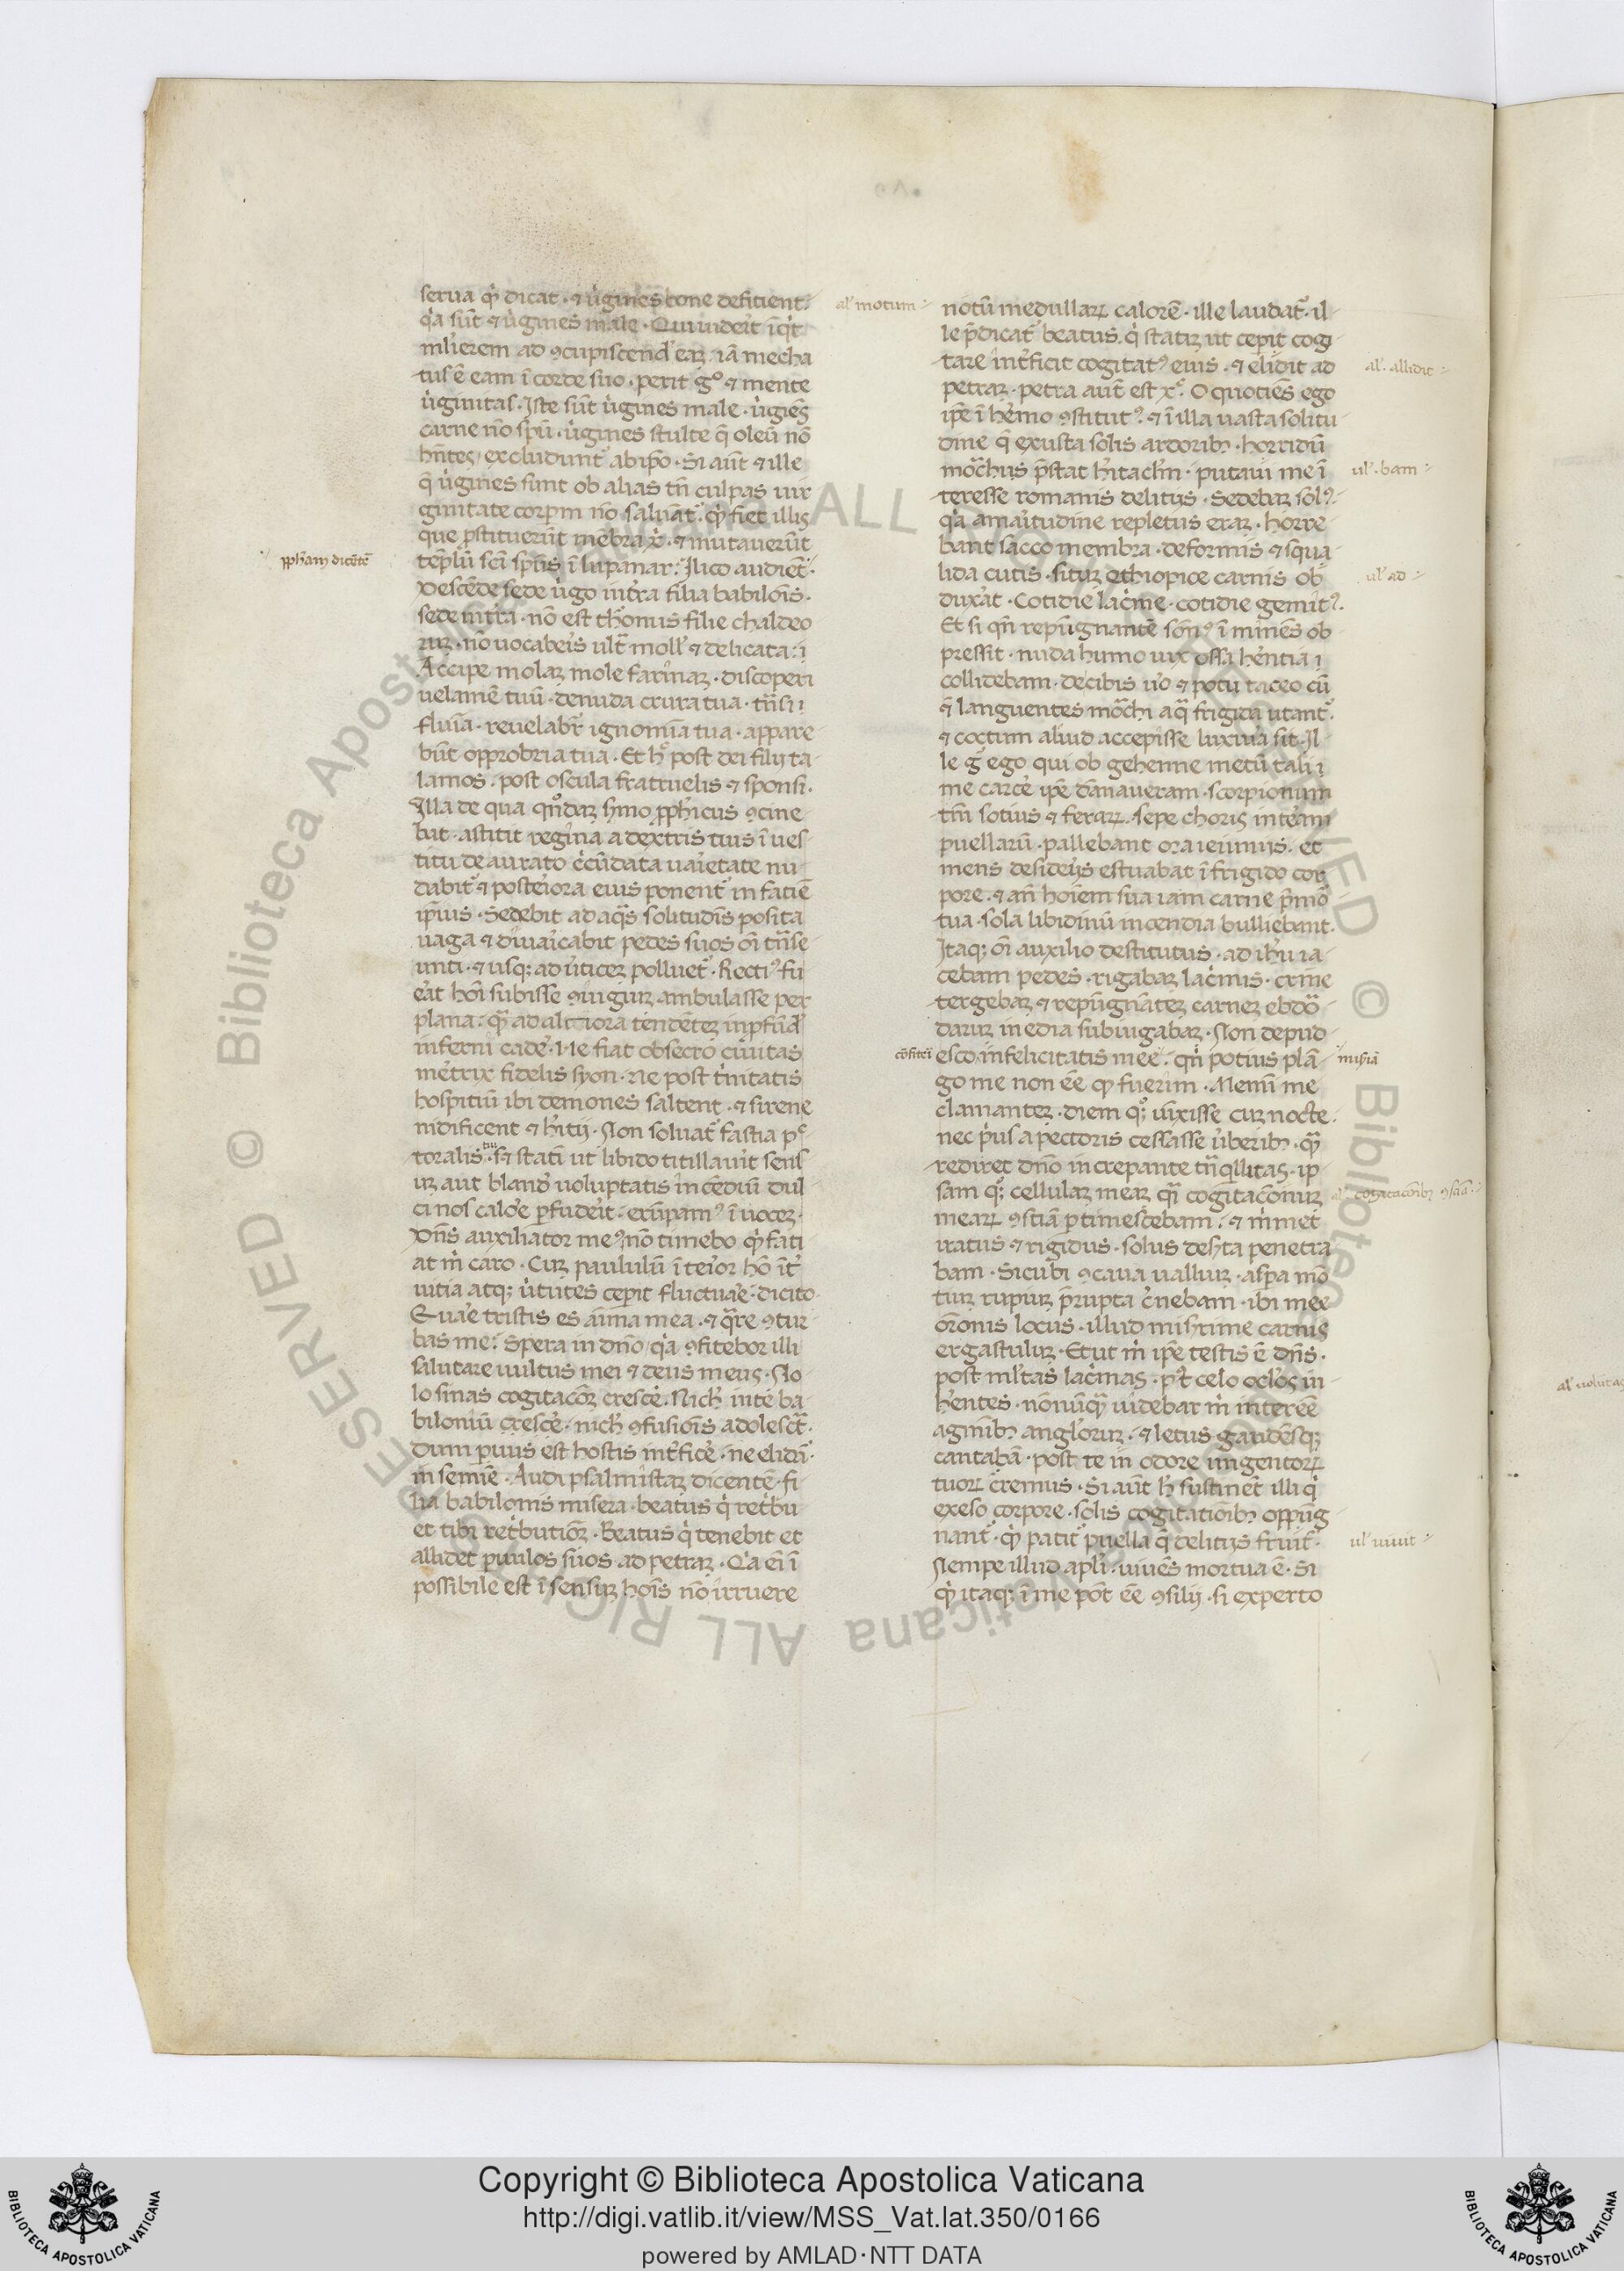 serua q̇ dicat · ⁊ u̇gines bone defitient·
q̇a sūt ⁊ u̇gines male · Qui uiderit īq̇t
ml̓ierem ad ꝯcupiscend̓ eaꝫ · iā mecha
tus ē eam ī corde suo · perit gͦ ⁊ mente
u̇ginitas · Iste sūt u̇gines male · u̇giēs
carne nō spū · u̇gines stulte q̄ oleū nō
hn̄tes excludunt᷑ ab ip̄o · Si aūt ⁊ ille
q̄ u̇gines sunt ob alias tn̄ culpas uir
ginitate corpꝝm nō saluāt᷑ · q̇ fiet illis
que ꝓstituerūt mēbra xp̄i · ⁊ mutauerūt
tēplū sc̄i sp̄us ī lupanar: Ilico audiet·
Descēde sede u̇go int̓ra filia babilois̄ ·
sede int̓ra · nō est thͦonus filie chaldeo
ruꝫ · nō uocabeis̓ ult̄ moll̓ ⁊ delicata: i
Accipe molaꝫ mole farīnaꝫ · discoperi
uelamē tuū · denuda crura tua · trn̄si i
fluīa · reuelabr̄ ignomīa tua · appare
būt opprobria tua · Et h̓ post dei filij ta
lamos · post oscula fratruelis ⁊ sponsi ·
Illa de qua qn̄daꝫ s̓mo ꝓph̓icus ꝯcine
bat · astitit regīna a dextris tuis ī ues
titu deaurato c̓cūdata uaie̓tate nu
dabit᷑ ⁊ posteiora eius ponent᷑ in fatiē
ip̄ius · Sedebit ad aq̄s solitudīs posita
uaga ⁊ diuaīcabit pedes suos oī trn̄se
unti · ⁊ usqꝫ ad u̇ticeꝫ polluet᷑ · Rectiꝰ fu
ea̓t hoī subisse ꝯiugiuꝫ ambulasse per
plana: q̄ ad altiora tendēteꝫ in ꝓfūd̓
inferni cade̓ · Ne fiat obsecro ciu̇itas
me̓trix fidelis syon · Ne post tri̓nitatis
hospitiū ibi demones saltent · ⁊ sirene
nidificent ⁊ he̓itij · Non soluat᷑ fastia pͨ
toralis · sꝫ stati ut libido titillau̓it sens
uꝫ aut bland̓ uoluptatis incēdiū dul
ci nos calo̓e ꝑfudei̓t · erūpamꝰ ī uoceꝫ ·
Dn̄s auxiliator meꝰ nō timebo q̇ fati
at m̓ caro · Cuꝫ paululū īteio̓r hō īt̓
uitia atqꝫ u̇tutes cepit fluctua̓e · dicito
Quae̓ tristis es aīma mea · ⁊ q̄re ꝯtur
bas me: Spera in dn̄o q̇a ꝯfitebor illi
salutare uultus mei ⁊ deus meus · No
lo sinas cogitacōꝫ cresce̓ · Nich̓ in te ba
biloniū cresce̓ · nich̓ ꝯfusiois̄ adolescat̄ ·
Dum ꝑuus est hostis int̓fice̓ · ne elidāt᷑
in semīe · Audi psalmistaꝫ dicentē · fi
lia babilonis misera · beatus q̇ ret̓bu
et tibi ret̓butiōꝫ · Beatus q̇ tenebit et
allidet ꝑuulos suos · ad petraꝫ · Q̇a eī ī
possibile est ī sensuꝫ hois̄ nō irruere
ꝓpham dicētē
al̓ motum
notū medullaꝝ calorē · ille laudat᷑ · il
le p̄dicat᷑ beatus · q̇ statiꝫ ut cepit cogi
tare int̓ficit cogitatꝰ eius · ⁊ elidit ad
petraꝫ · petra aūt est xͨ · O quotiēs ego
ip̄e ī he̓mo ꝯstitutꝰ · ⁊ ī illa uasta solitu
dine q̄ exusta solis ardoribꝫ · horridū
mōchus p̄stat hi̓tacl̓m · putaui me ī
teresse romanis delitijs · Sedebaꝫ solꝰ ·
q̇a amai̓tudine repletus eraꝫ · horre
bant sacco membra · deformis ⁊ squa
lida cutis · situꝫ ethiopice carnis ob
duxa̓t · Cotidie lac̓me · cotidie gemitꝰ ·
Et si qn̄ repūgnantē sōnꝰ īminēs ob
pressit · nuda humo uix ossa he̓ntia i
collidebam · de cibis uo̓ ⁊ potu taceo cū
⁊ languentes mōchi aq̄ frigida utant᷑ ·
⁊ coctum aliud accepisse luxuia sit · Il
le g̓ ego qui ob gehenne metū tali i
me carce̓ ip̄e dānaueram · scorpionum
tm̄ sotius ⁊ feraꝝ · sepe choris inte̓am
puellarū · pallebant ora ieiunijs · et
mens desideij̓s estuabat ī frigido cor
pore · ⁊ an̄ hoīem sua iam carne p̄mo᷑
tua · sola libidinū incendia bulliebant ·
Itaqꝫ oī auxilio destitutus · ad ih̓u ia
cebam pedes · rigabaꝫ lac̓mis · crine
tergebaꝫ ⁊ repūgnāteꝫ carneꝫ ebdo᷑
daruꝫ inedia subiugabaꝫ · Non depud
esco infelicitatis mee · qn̓ potius plā
go me non eē ꝙ fuerim · Memī me
clamanteꝫ · diem qͦꝫ iūxisse cuꝫ nocte ·
nec p̓us a pectoris cessasse u̇beribꝫ · q̄
rediret dn̄o increpante trn̄qllitas · ip
sam qͦꝫ cellulaꝫ meaꝫ q̄i cogitacōnuꝫ
meaꝝ ꝯsciā ꝑtimescebam · ⁊ m̓met
iratus ⁊ rigidus · solus dese̓ta penetra
bam · Sicubi ꝯcaua ualliuꝫ · aspa mō
tiuꝫ rupiuꝫ p̄rupta c̓nebam · ibi mee
or̄onis locus · illud mise̓rime carnis
ergastuluꝫ · Et ut m̓ ip̄e testis ē dn̄s ·
post ml̓tas lac̓mas · pꝰt celo ocl̓os in
he̓ntes · nōnūq̄ uidebar m̓ interēē
agminibꝫ angl̓oruꝫ · ⁊ letus gaudēsqꝫ
cantabā · post te in odore ungentoꝝ
tuoꝝ cr̄emus · Si aūt h̓ sustinēt illi q̇
exeso corpore · solis cogitatiōibꝫ oppūg
nant᷑ · q̇ patit᷑ puella q̄ delitijs fruit᷑ ·
Nempe illud apl̓i · uiuēs mortua ē · Si
q̇ itaqꝫ ī me pōt eē ꝯsilij · si experto
al̓ · allidit
ul̓ · bam
ul̓ ad
cōfiteri
mis̓iā
al̓ cogitacōibꝫ ꝯsciā
ul̓ uiuit
al̓ uolutas
Copyright © Biblioteca Apostolica Vaticana
http://digi.vatlib.it/view/MSS_Vat.lat.350/0166
powered by AMLAD·NTT DATA